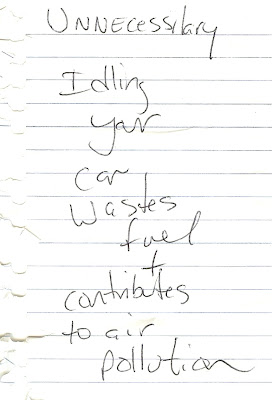 UNNECESSILARY
Idling
your
car
wastes
fuel
+
contributes
to air
pollution